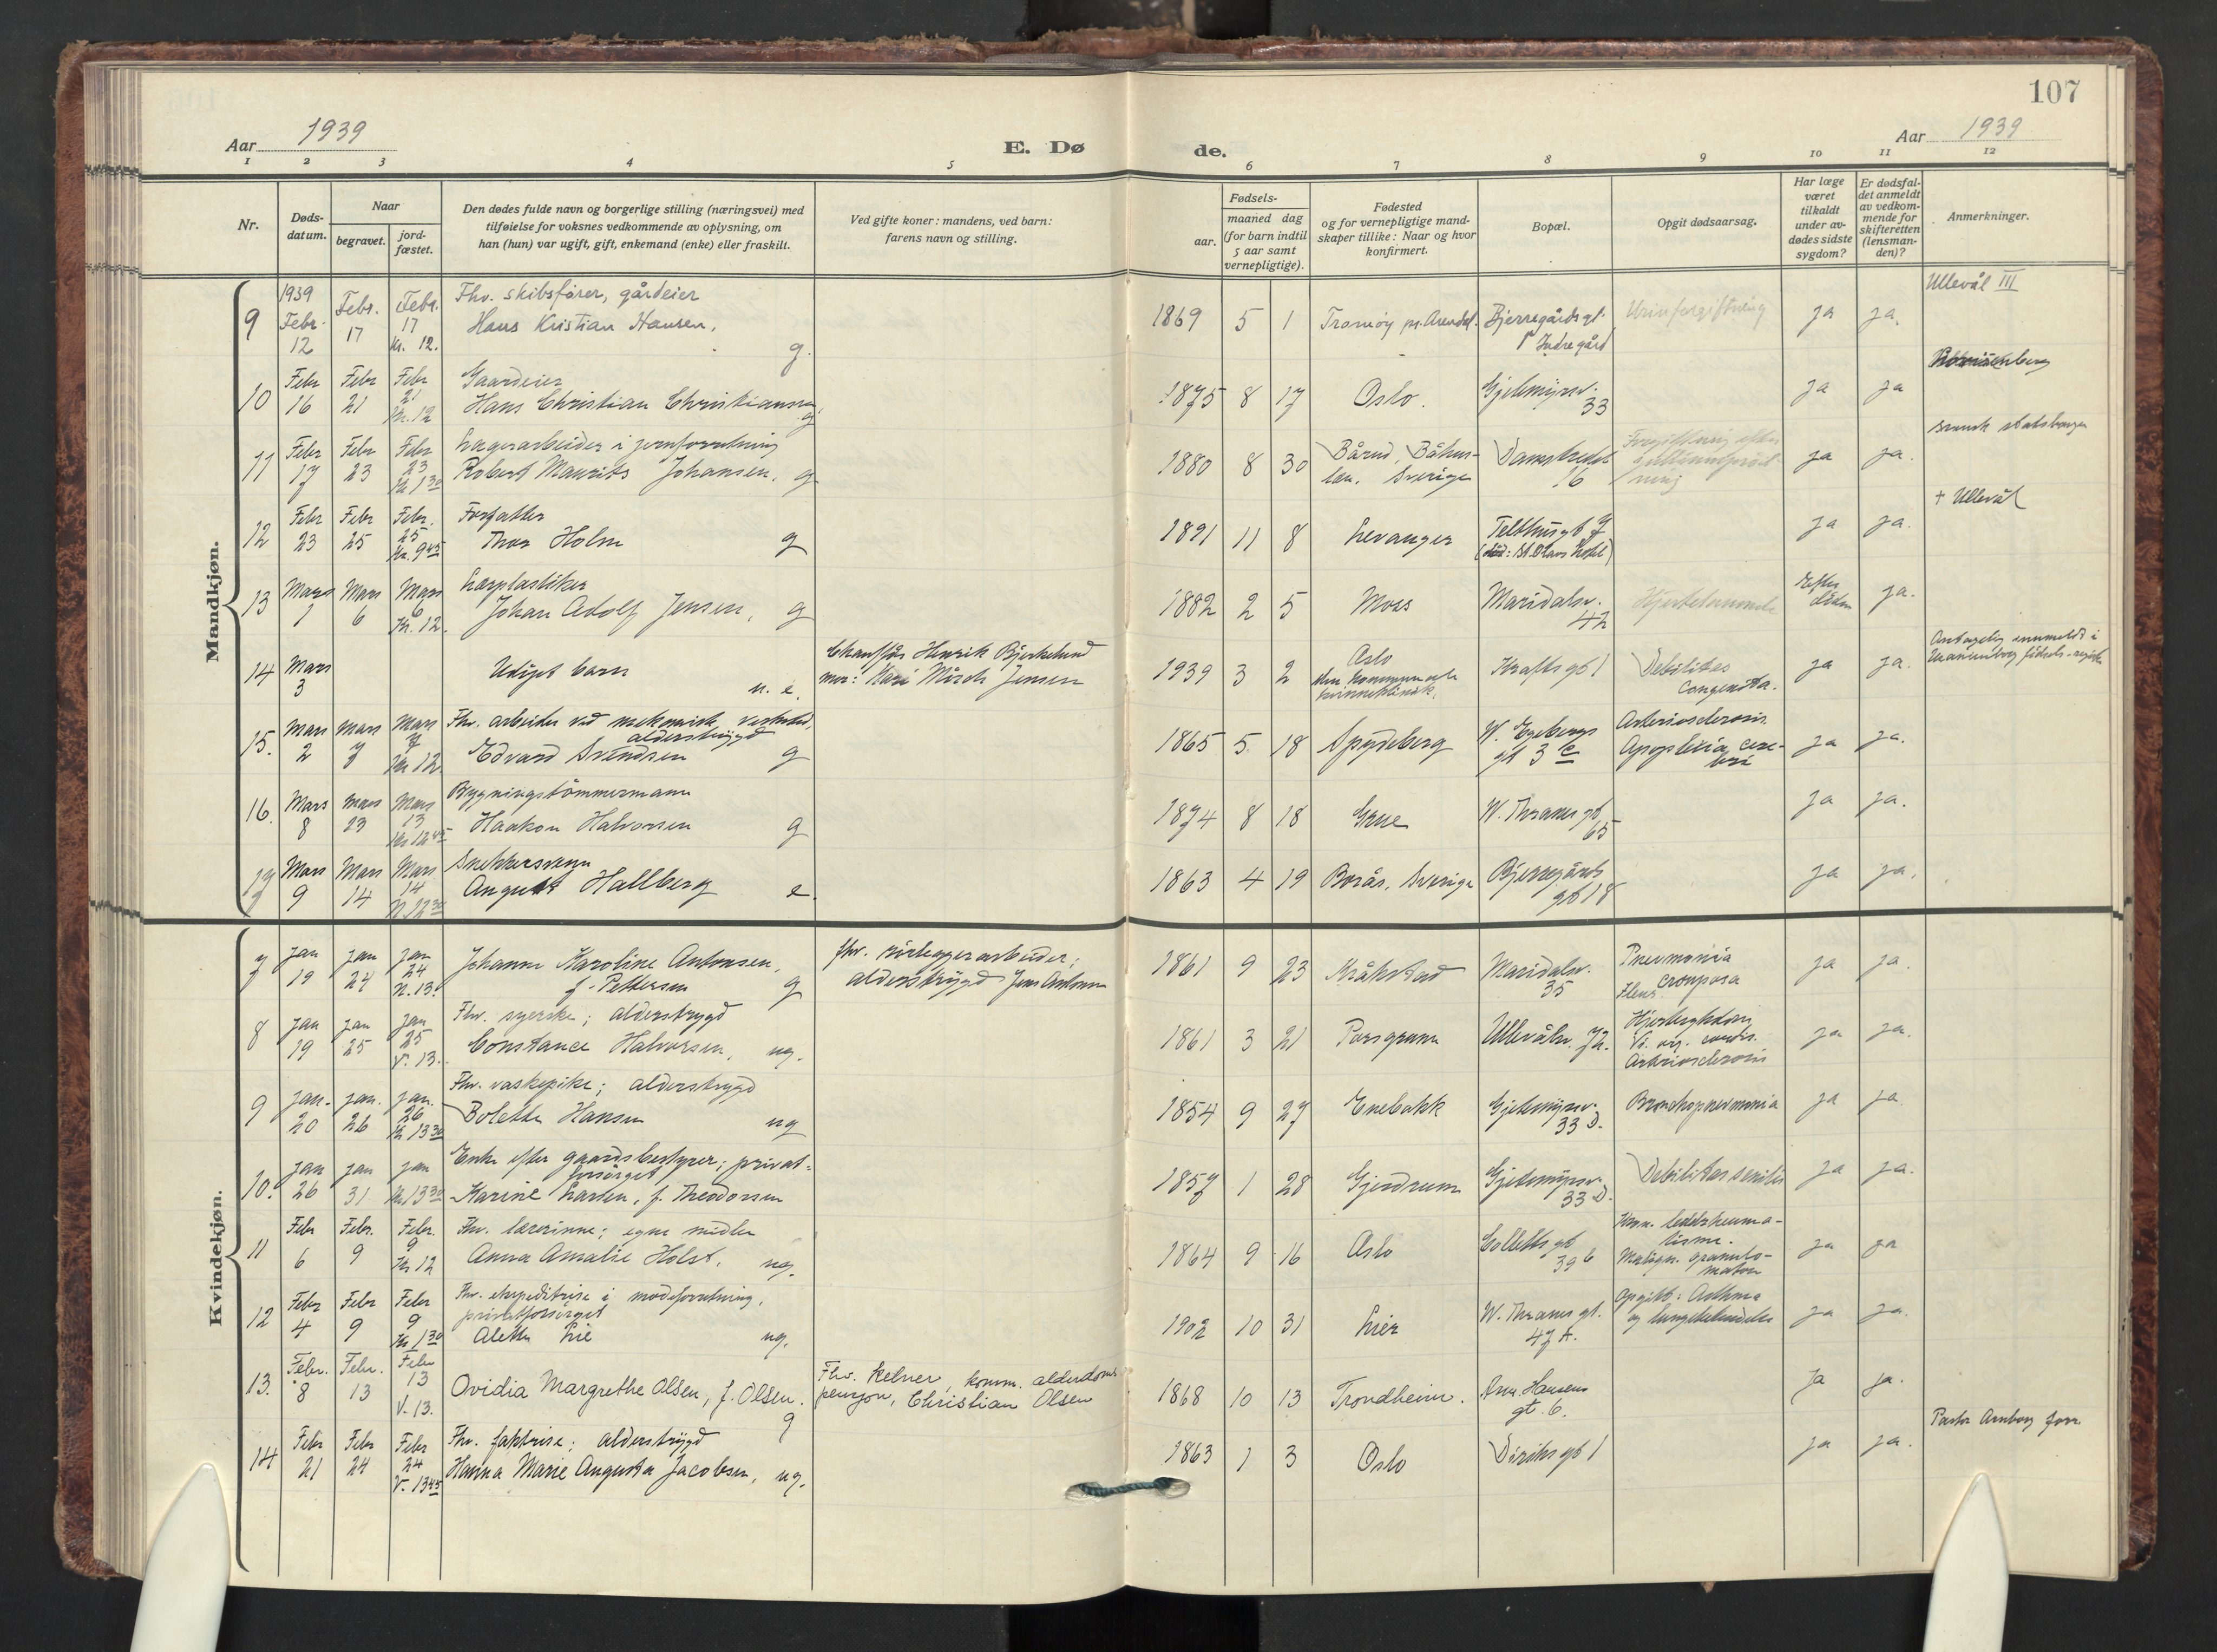 107
Aar 1939
E. Dø
de.
Aar 1939
1 2 3 4 5 6 7 8 9 10 11 12
Nr.
Døds-
datum.
Naar
begravet.
jord-
fæstet.
Den dødes fulde navn og borgerlige stilling (næringsvei) med
tilføielse for voksnes vedkommende av oplysning, om
han (hun) var ugift, gift, enkemand (enke) eller fraskilt.
Ved gifte koner: mandens, ved barn:
farens navn og stilling.
Fødsels-
aar.
maaned dag
(for barn indtil
5 aar samt
vernepligtige).
Fødested
og for vernepligtige mand-
skaper tillike: Naar og hvor
konfirmert.
Bopæl.
Opgit dødsaarsag.
Har læge
været
tilkaldt
under av-
dødes sidste
sygdom?
Er dødsfal-
det anmeldt
av vedkom-
mende for
skifteretten
(lensman-
den)?
Anmerkninger.
Mandkjøn.
9
1939
Febr.
12
Febr.
17
Febr.
17
Kl. 12.
Fhv. skibsfører, gårdeier
Hans Kristian Hansen,
g.
1869 5 1
Tromøy pr. Arendal.
Bjerregårdsgt.
Indregård
Urinforgiftning
ja ja.
Ullevål III
10
Febr
16
Febr
21
Febr
21
Kl. 12
Gaardeier
Hans Christian Christiansen,
g
1875 8 17
Oslo.
Gjetemyrsv.
33
ja ja
11
Febr
17
Febr
23
Febr
23
Kl 1 30
Lagerarbeider i jernforretning
Robert Maurits Johansen. g
1880 8 30
Bårud, Båhus-
len. Sverige
Damstredet
16
Forgiftning efter
ja ja.
svensk statsborger
12
Febr
23
Febr
25
Febr.
25
Kl. 9 45
Forfatter
Thor Holm g
1891 11 8
Levanger
Telthusgt 7
(død: St. Olavs hotel)
ja ja.
+ Ullevål
13
Mars
1
Mars
6
Mars
6
Kl. 12.
Johan Adolf Jensen, g
1882 2 5
Moss
Maridalsv.
42
Efter
døden
ja.
14
Mars
3
Udøpt barn
u. e.
Chauffør Henrik Bjerkelund
mor: Kari Münch Jensen
1939 3 2
Oslo
den kommunale
kvinneklinik.
Kraftsgt 1
Debilitas
congenita.
ja ja.
Antagelig innmeldt i
fødsels-register
15.
Mars
2
Mars
7
Mars
7
Kl 12
Fhv. arbeider ved mekanisk verksted,
alderstrygd
Edvard Svendsen g
1865 5 18
Spydeberg
W. Egebergs
gt 3 c
Arteriosclerosis
Apoplexia cere-
bri
ja ja.
16.
Mars
8
Mars
23
Mars
13
Kl 12 45
Bygningstømmermann
Haakon Halvorsen g
1874 8 18
Grue
W. Thranes gt
65
ja ja.
17
Mars
9
Mars
14
Mars
14
Kl 12 30
Snekkersvenn
August Hallberg e.
1863 4 19
Borås, Sverige
Bjerregårds
gt 18
ja ja.
Kvindekjøn.
7
Jan
19
Jan
24
Jan
24
N. 13.
Johanne Karoline Antonsen,
f. Pettersen g
fhv. rørleggerarbeider;
alderstrygd Jens Antonsen
1861 9 23
Kråkstad
Maridalsv.
35
Pneumonia
crouposa
ja ja.
8
Jan
19
Jan
25
Jan
25
V. 13.
Fhv. syerske; alderstrygd
Constance Halvorsen, ug.
1861 3 21
Porsgrunn
Ullevålsv. 72.
Hjertesykdom
Vi. org. cordis.
Arteriosclerosis
ja ja.
9
Jan.
20
Jan.
26
Jan.
26
Kl 13 30
Fhv. vaskepike; alderstrygd
Bolette Hansen ug
1854 9 27
Enebakk
Gjetemyrsv.
33 D.
Bronchopneumonia
ja ja.
10.
Jan
26
Jan
31
Jan
Kl 13 30
Enke efter gaardsbestyrer; privat-
forsørget
Karine Larsen, f. Theodorsen
1857 1 28
Gjerdrum
Gjetemyrsv.
33 D.
Debilitas senilis
ja ja.
11
Febr
6
Febr.
9
Febr.
9
Kl 12
Fhv. lærerinne; egne midler
Anna Amalie Holst. ug.
1864 9 16
Oslo
Colletts gt
39 b
Kron. leddrheuma-
tisme.
Malign. granulo-
matose
ja ja
12
Febr
4
Febr
9
Febr
9
Kl 1 30
Fhv. ekspeditrise i moteforretning,
privatforsørget
Alette Lie ug.
1902 10 31
Lier
W. Thranes gt.
47 A.
Opgitt: Asthma
og lungebetendelse
ja ja.
13.
Febr.
8
Febr.
13
Febr
13
V. 13.
Ovidia Margrethe Olsen, f. Olsen.
g
Fhv. kelner, komm. alderdoms
pensjon, Christian Olsen
1868 10 13
Trondheim.
Arn. Hansens
gt. 6.
ja ja.
14
Febr
21
Febr
24
Febr
24
V. 13 45
Fhv. fabtrise; alderstrygd
Hanna Marie Augusta Jacobsen, ug.
1863 1 3
Oslo
Diriks gt 1
ja ja.
Pastor Arnborg forr.